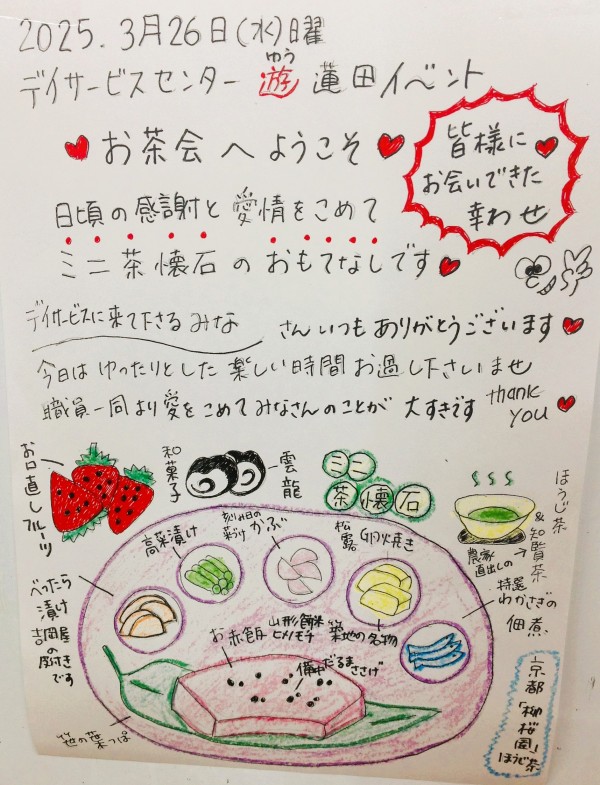 2025. 3月26日(水)曜
ゆう
デイサービスセンター 遊 蓮田イベント
お茶会へようこそ
皆様に
お会いできた
幸わせ
日頃の感謝と愛情をこめて
ミニ茶懐石のおもてなしです
デイサービスに来て下さるみな さんいつもありがとうございます
今日はゆったりとした楽しい時間お過し下さいませ
職員一同より愛をこめてみなさんのことが大すきです
thank
you
お口直しフルーツ
和菓子
雲龍
ミニ
茶懐石
ほうじ茶
&知覧茶
農家
直出しの
高菜漬け
刻み目の
かぶ
松露
卵焼き
築地の名物
特選
わかさぎの
佃煮
べったら
漬け
吉岡屋
の
です
お赤飯
山形餅米
ヒメノモチ
備中だるまささげ
笹の葉っぱ
京都
「柳桜園」
ほうじ茶